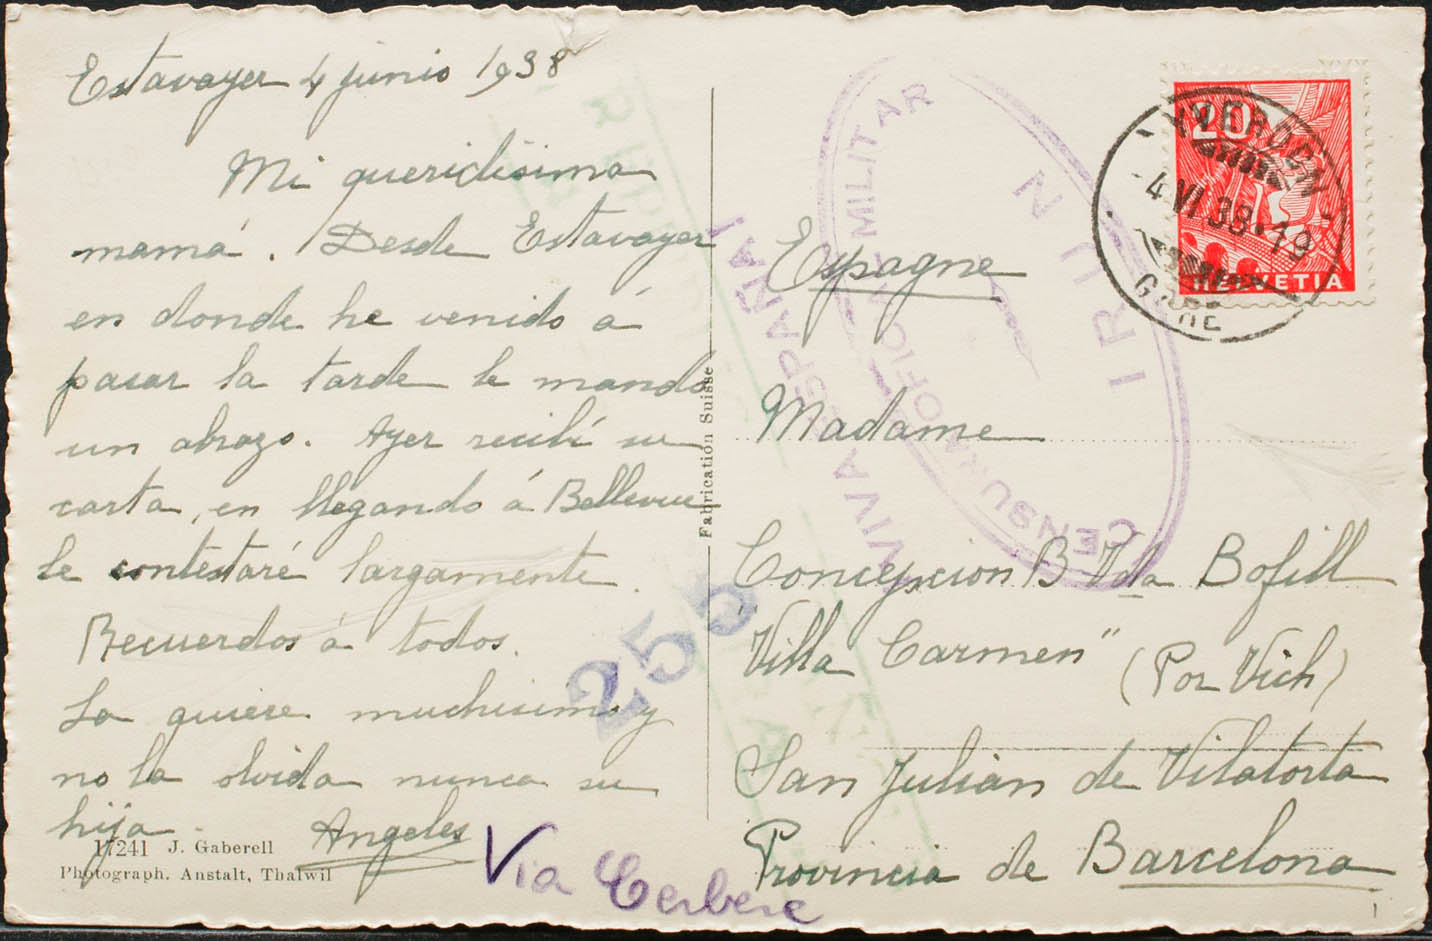 Estavayer 4 junio 1938
Mi queridísima
mamá. Desde Estavayer
en donde he venido á
pasar la tarde le mando
un abrazo. Ayer recibí su
carta, en llegando á Bellevue
le contestaré largamente.
Recuerdos á todos.
La quiere muchisimo y
no la olvida nunca su
hija.
Angeles
17241 J. Gaberell
Photograph. Anstalt, Thalwil
Via Cerbere
Fabrication Suisse
255
20
HELVETIA
YVERDON
-4.VI.38.19
GARE
CENSURA OFICIAL MILITAR
IRUN
VIVA ESPAÑA!
Espagne
Madame
Concepcion B. Vda Bofill
"Villa Carmen" (Por Vich)
San Julián de Vilatorta
Provincia de Barcelona